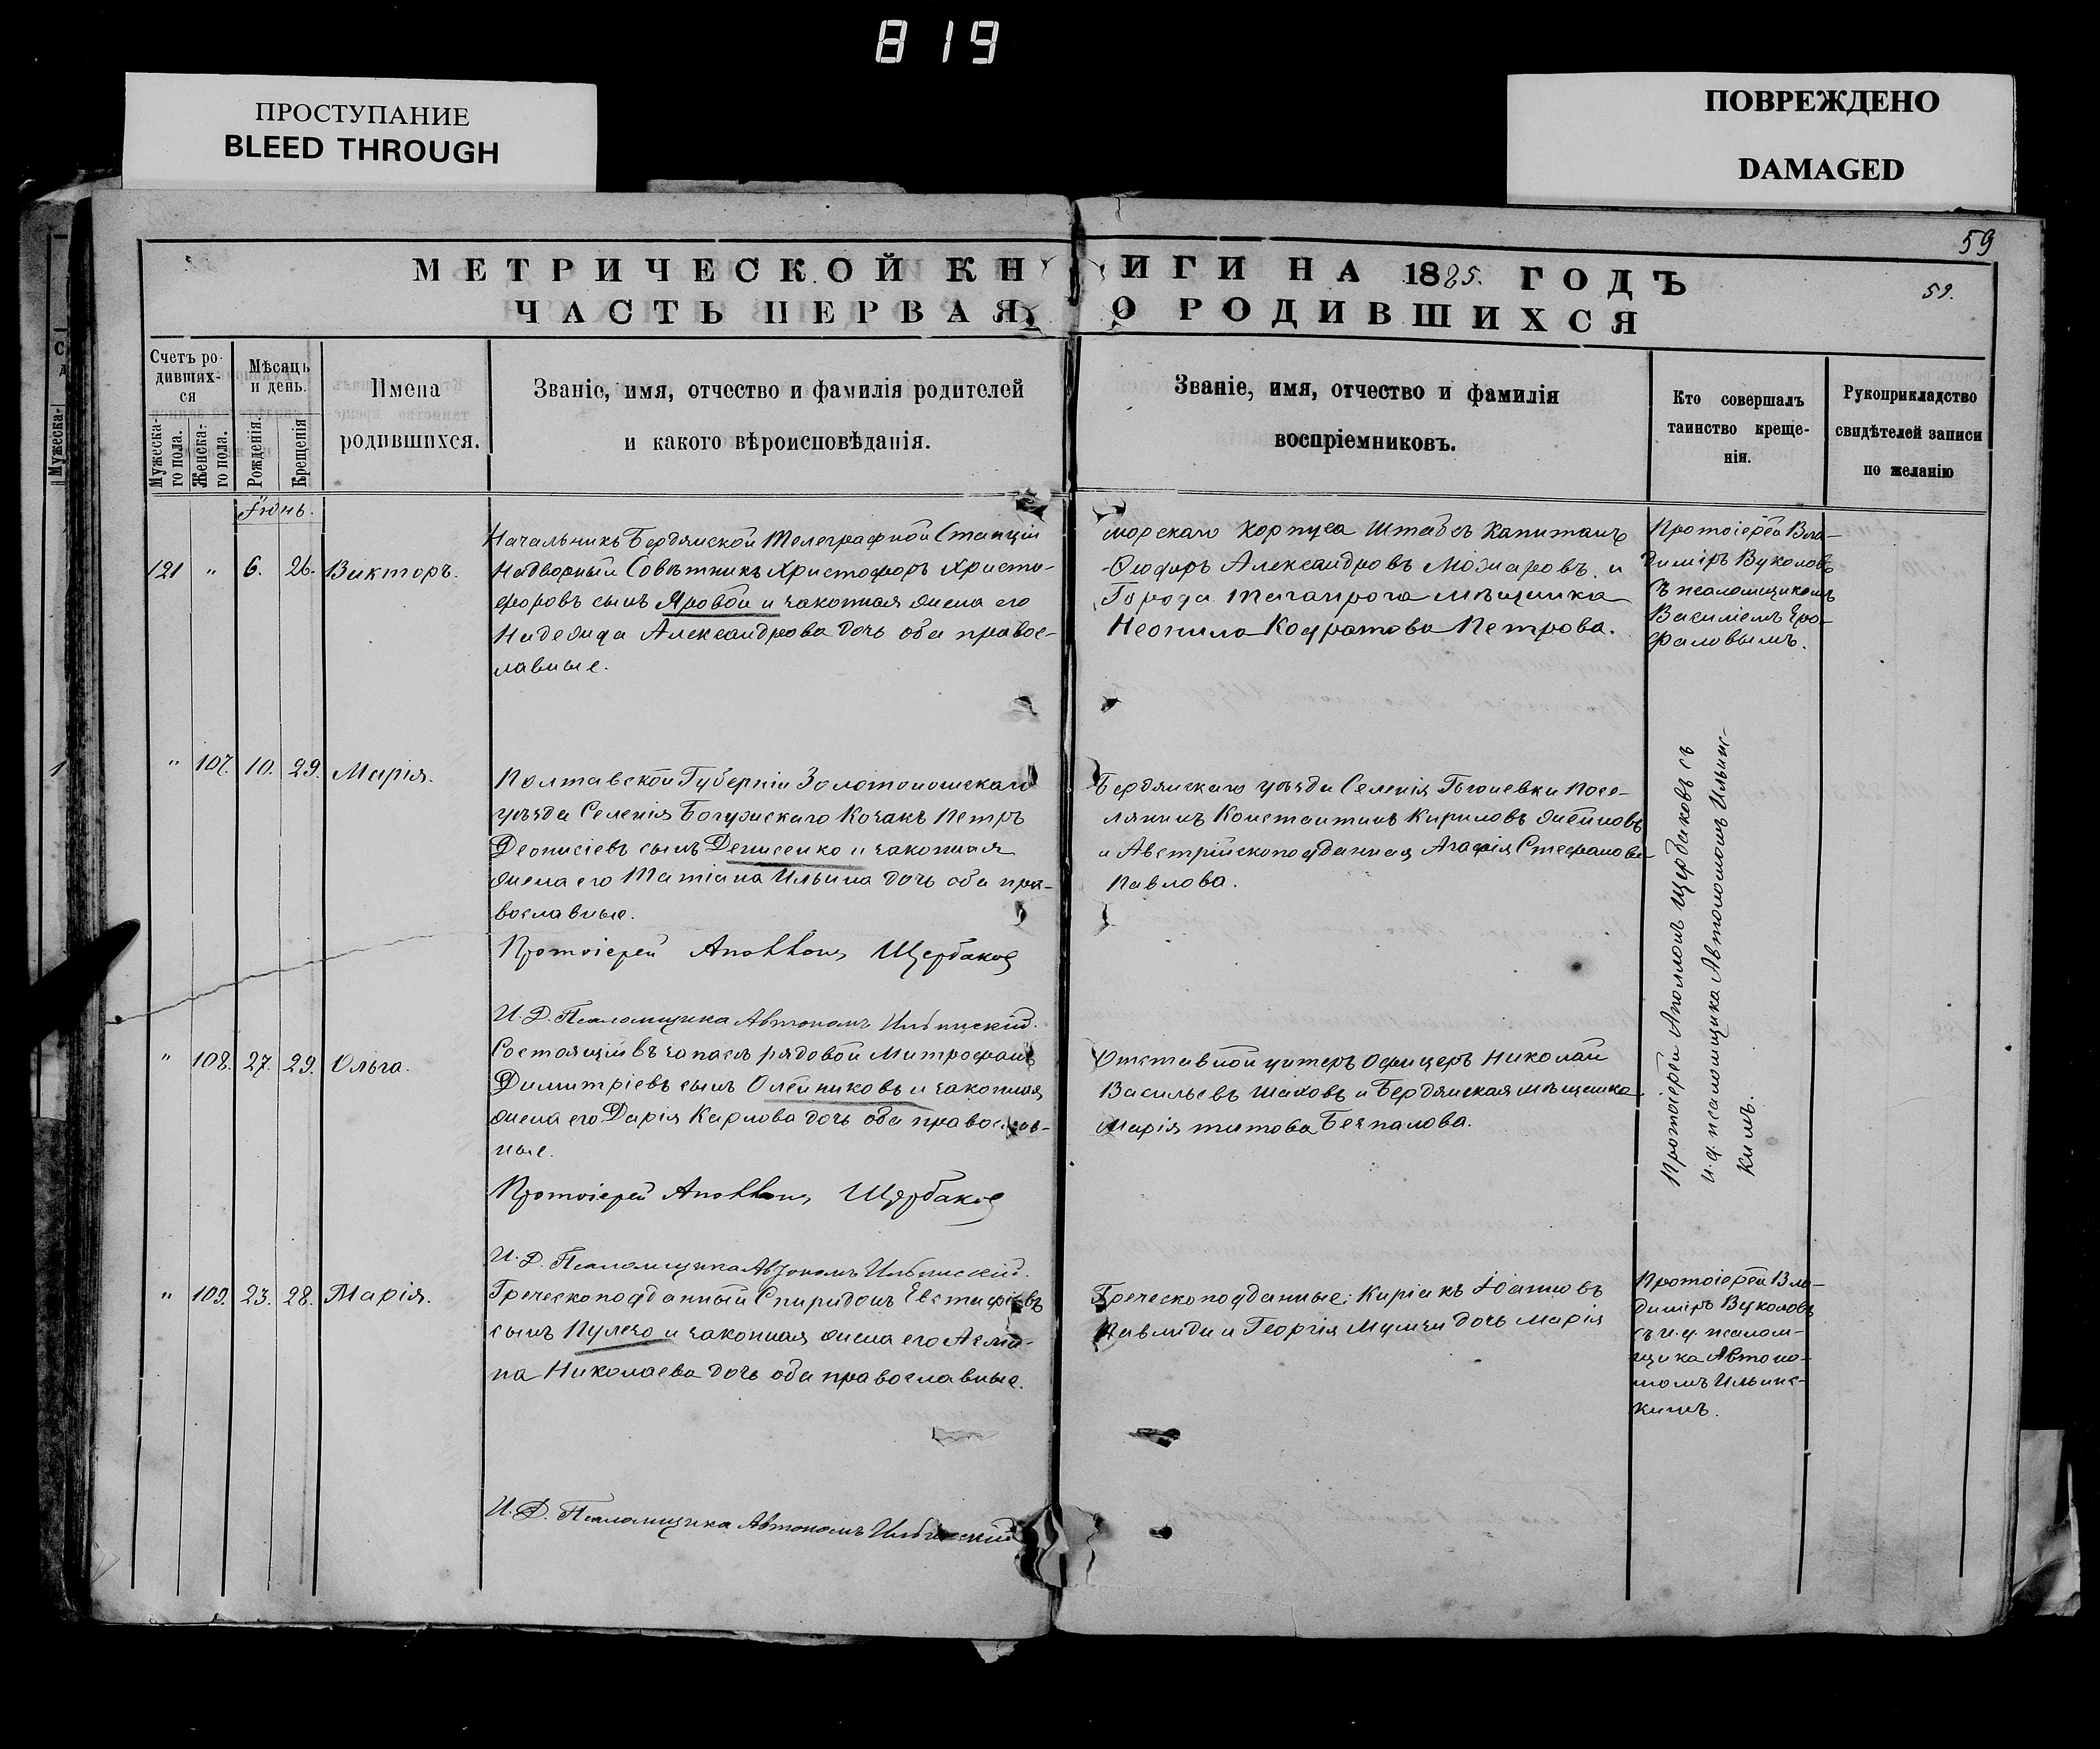 819
ПРОСТУПАНИЕ
BLEED THROUGH
ПОВРЕЖДЕНО
DAMAGED
59
МЕТРИЧЕСКОЙ КНИГИ НА 1885. ГОДЪ
59.
ЧАСТЬ ПЕРВАЯ, О РОДИВШИХСЯ
Счетъ ро-
дивших-
ся
Мужеска-
го пола.
Женска-
го пола.
Мѣсяць
и день.
Рожденія.
Крещенія
Имена
родившихся.
Званіе, имя, отчество и фамилія родителей
и какого вѣроисповѣданія.
Званіе, имя, отчество и фамилія
воспріемниковъ.
Кто совершалъ
таинство креще-
нія.
Рукоприкладство
свидѣтелей записи
по желанію
Іюнь.
121 " 6. 26. Викторъ.
Начальникъ Бердянской Телеграфной Станціи
Надворный Совѣтникъ Христофоръ Христо-
форовъ сынъ Яровой и законная жена его
Надежда Александрова дочь оба правос-
лавные.
морскаго Корпуса Штабсъ Капитанъ
Ѳеодоръ Александровъ Можаровъ и
Города Таганрога мѣщанка
Неонила Кодратова Петрова.
Протоіерей Вла-
диміръ Вуколовъ
съ псаломщикомъ
Василіемъ Ero-
фаловымъ.
" 107. 10. 29. Марія.
Полтавской Губерніи Золотоношскаго
уѣзда Селенія Богушскаго Козакъ Петръ
Деонисіевъ сынъ Денисенко и законная
жена его Татіана Ильина дочь оба пра-
вославные.
Бердянскаго уѣзда Селенія посе-
лянинъ Константинъ Кириловъ
и Австрійскоподданная Агафія Стефанова
Павлова.
Протоіерей Аполлонъ Щербаковъ съ
и.д. псаломщика Автономомъ Ильинс-
кимъ.
Протоіерей Аполлонъ Щербаковъ
И.Д. Псаломщика Автономъ Ильинскій.
" 108. 27. 29. Ольга.
Состоящій въ запасѣ рядовой Митрофанъ
Димитріевъ сынъ Олейниковъ и законная
жена его Дарія Карпова дочь оба православ-
ные.
Отставной унтеръ Офицеръ Николай
Васильевъ Шаховъ и Бердянская мѣщанка
Марія Титова Безпалова.
Протоіерей Аполлонъ Щербаковъ
И.Д. Псаломщика Автономъ Ильинскій.
" 109. 23. 28. Марія.
Греческоподданный Спиридонъ Евстафіевъ
сынъ Пулезо и законная жена его Асми-
на Николаева дочь оба православные.
Греческоподданные: Киріакъ Іоанновъ
Павлиди и Георгія Мумзи дочь Марія
Протоіерей Вла-
диміръ Вуколовъ
съ и.д. псалом-
щика Автоно-
момъ Ильинс-
кимъ.
И.Д. Псаломщика Автономъ Ильинскій